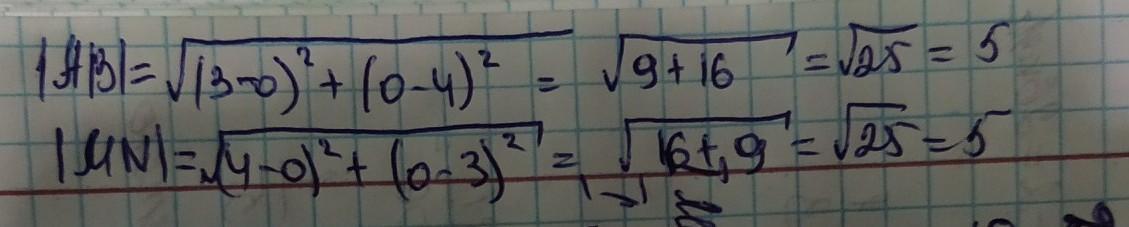 |AB| = √(3-0)² + (0-4)² = √9+16 = √25 = 5
|MN| = √(4-0)² + (0-3)² = √16+9 = √25 = 5